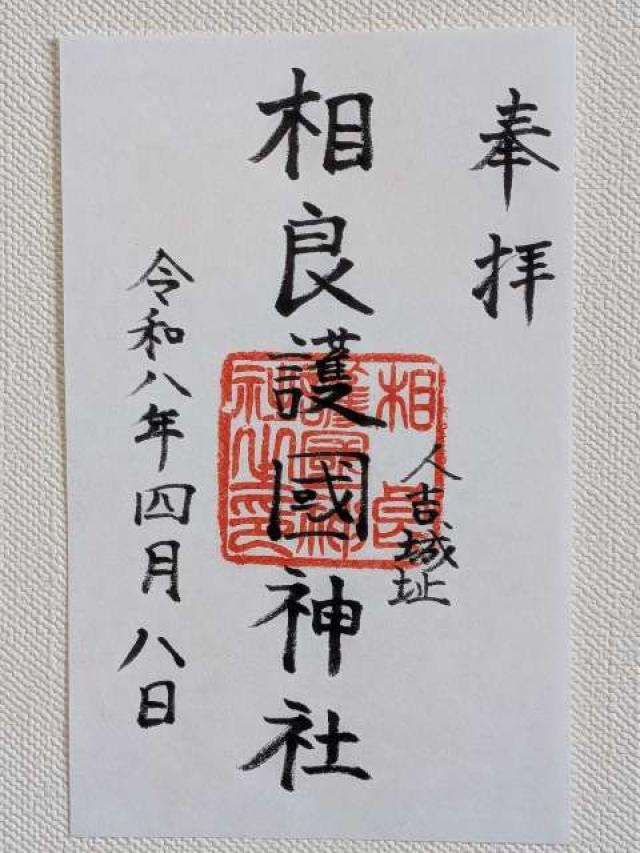 奉拝
人吉城址
相良護國神社
相良
護國神
社之印
令和八年四月八日